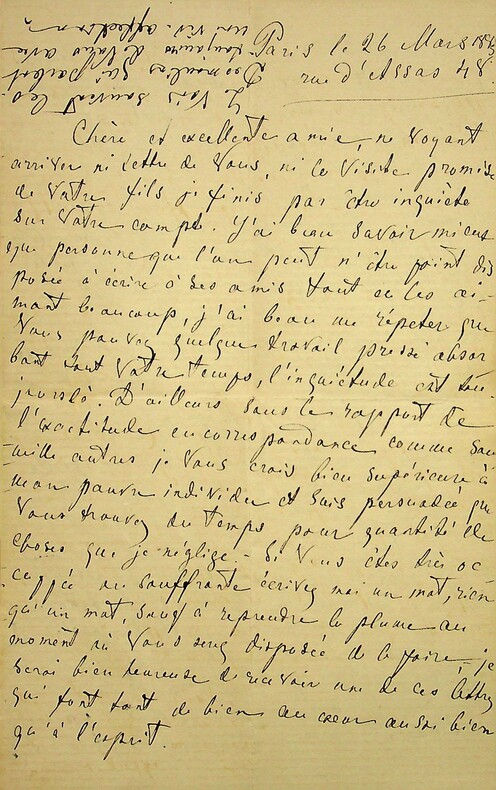 Paris le 26 Mars
rue d'Assas 48.
Chère et excellente amie, ne voyant
arriver ni lettre de vous, ni la visite promise
de votre fils je finis par être inquiète
sur votre compte. J'ai beau savoir mieux
que personne que l'on peut n'être point dis
posée à écrire à ses amis tout en les ai-
mant beaucoup, j'ai beau me répéter que
vous pouvez quelque travail pressé absor
bant tout votre temps, l'inquiétude est tou-
jours là. D'ailleurs sous le rapport de
l'exactitude en correspondance comme sous
mille autres je vous crois bien supérieure à
mon pauvre individu et suis persuadée que
vous trouvez du temps pour quantité de
choses que je néglige. - Si vous êtes très oc
cupée ou souffrante écrivez moi un mot, rien
qu'un mot, sauf à reprendre la plume au
moment où vous serez disposée de le faire, - je
serai bien heureuse de recevoir une de ces lettres
qui font tant de bien au cœur aussi bien
qu'à l'esprit.
Je vois souvent les
toujours de vous avec
une vive affection.